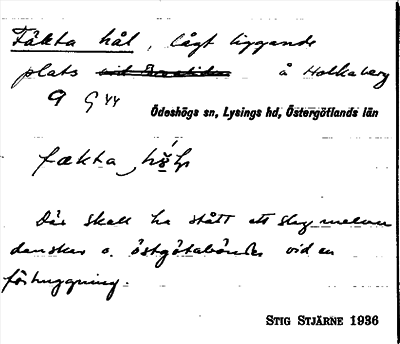 Fäkta hål, lågt liggande
plats å Holkaberg
9 G 44
Ödeshögs sn, Lysings hd, Östergötlands län
fækta,
Där skall ha stått ett slag mellan
danskar o. östgötabönder vid en
förhuggning.
STIG STJÄRNE 1936